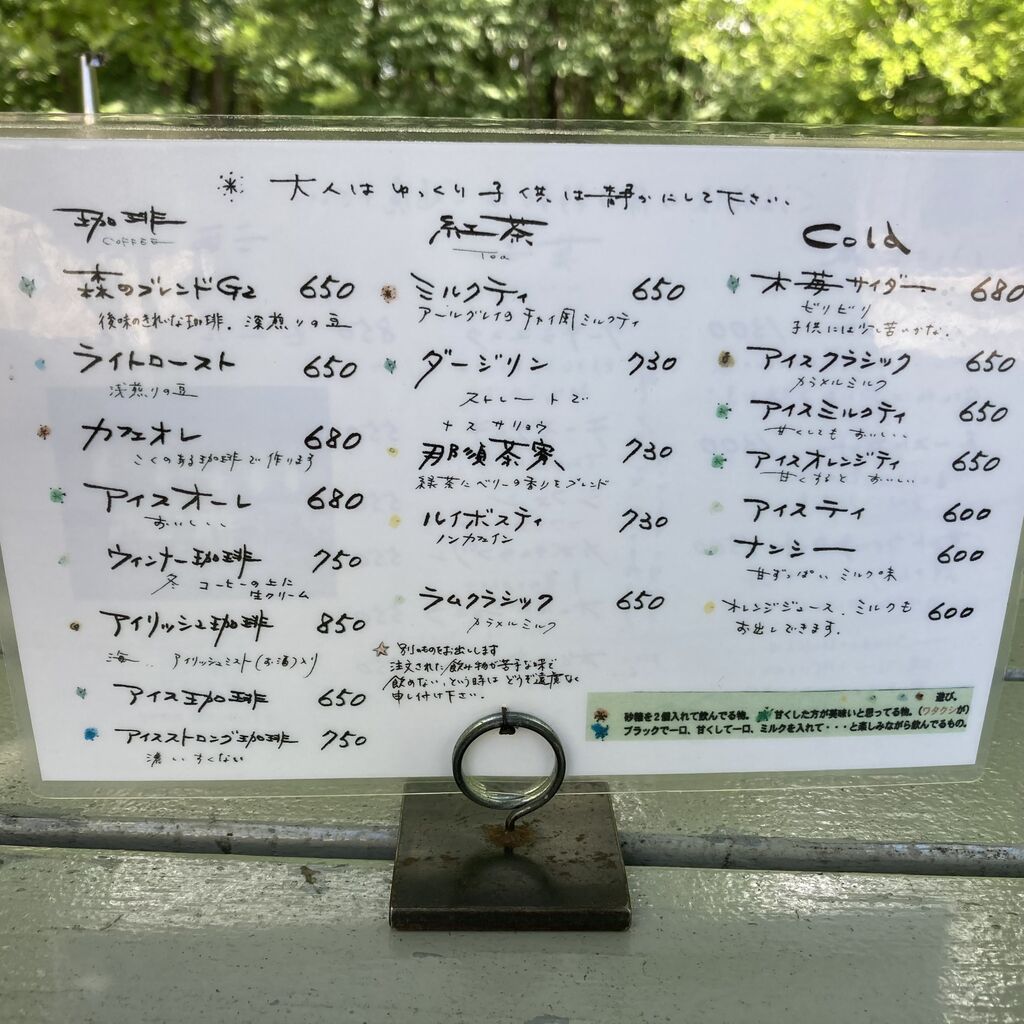 大人はゆっくり子供は静かにして下さい、
珈琲
COFFEE
森のブレンドG2 650
後味のきれいな珈琲、深煎りの豆
ライトロースト 650
浅煎りの豆
カフェオレ 680
こくのある珈琲で作ります
アイスオーレ 680
おいしい、、
ウィンナー珈琲 750
冬 コーヒーの上に
生クリーム
アイリッシュ珈琲 850
海、、アイリッシュミスト(お酒)入り
アイス珈琲 650
アイスストロング珈琲 750
濃い、すくない
紅茶
Tea
ミルクティ 650
アールグレイのチャイ風ミルクティ
ダージリン 730
ストレートで
ナスサリョウ
那須茶寮 730
緑茶にベリーの香りをブレンド
ルイボスティ 730
ノンカフェイン
ラムクラシック 650
カラメルミルク
別のものをお出しします
注文された飲み物が苦手な味で
飲めない、という時はどうぞ遠慮なく
申し付け下さい。
Cold
木苺サイダー 680
ビリビリ
子供には少し苦いかな、
アイスクラシック 650
カラメルミルク
アイスミルクティ 650
甘くしてもおいしい、、
アイスオレンジティ 650
甘くすると おいしい
アイスティ 600
ナンシー 600
甘ずっぱい ミルク味
オレンジジュース、ミルクも 600
お出しできます。
遊び。
砂糖を2個入れて飲んでる物。 甘くした方が美味いと思ってる物。(ワタクシが)
ブラックで一口、甘くして一口、ミルクを入れて・・・と楽しみながら飲んでるもの。